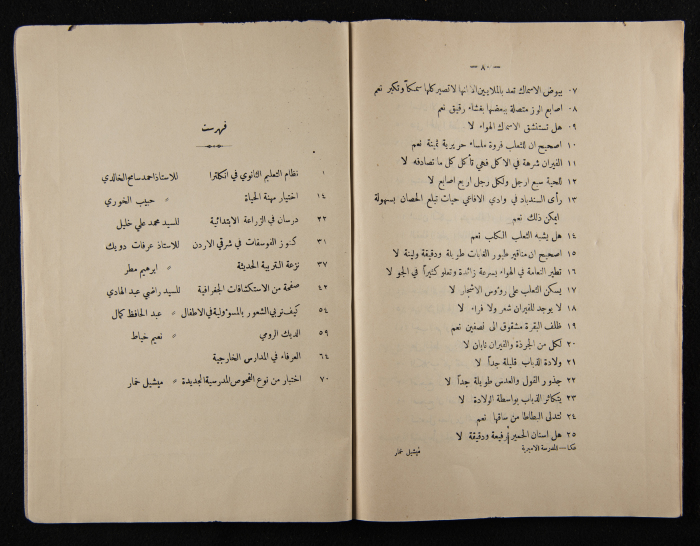 — ٨٠ —
٠٧ بيوض الاسماك تعد بالملايين لانها لا تصير كلها سمكاً وتكبر نعم
٠٨ اصابع الوز متصلة ببعضها بغشاء رقيق نعم
٠٩ هل تستنشق الاسماك الهواء لا
١٠ اصحيح ان للثعلب فروة ملساء حريرية ثمينة نعم
١١ الفيران شرهة في الاكل فهي تأكل كل ما تصادفه لا
١٢ للحية سبع ارجل ولكل رجل اربع اصابع لا
١٣ رأى السندباد في وادي الافاعي حيات تبلع الحصان بسهولة
ايمكن ذلك نعم
١٤ هل يشبه الثعلب الكلب نعم
١٥ اصحيح ان مناقير طيور الغابات طويلة ودقيقة ولينة لا
١٦ تطير النعامة في الهواء بسرعة زائدة وتعلو كثيراً في الجو لا
١٧ يسكن الثعلب على رؤوس الاشجار لا
١٨ لا يوجد للفيران شعر ولا فراء لا
١٩ ظلف البقرة مشقوق الى نصفين نعم
٢٠ لكل من الجرذة والفيران نابان لا
٢١ ولادة الذباب قليلة جداً لا
٢٢ جذور الفول والعدس طويلة جداً لا
٢٣ يتكاثر الذباب بواسطة الولادة لا
٢٤ تتدلى البطاطا من ساقها نعم
٢٥ هل اسنان الحمير رفيعة ودقيقة لا
عكا — المدرسة الاميرية ميشيل خمار
فهرست
١ نظام التعليم الثانوي في انكلترا للاستاذ احمد سامح الخالدي
١٤ اختيار مهنة الحياة » حبيب الخوري
٢٢ درسان في الزراعة الابتدائية للسيد محمد علي خليل
٣١ كنوز الفوسفات في شرقي الاردن للاستاذ عرفات دويك
٣٧ نزعة التربية الحديثة » ابرهيم مطر
٤٢ صفحة من الاستكشافات الجغرافية للسيد راضي عبد الهادي
٥٤ كيف نربي الشعور بالمسؤولية في الاطفال » عبد الحافظ كمال
٥٩ الديك الرومي » نعيم خياط
٦٤ العرفاء في المدارس الخارجية
٧٠ اختبار من نوع الفحوص المدرسية الجديدة » ميشيل خمار